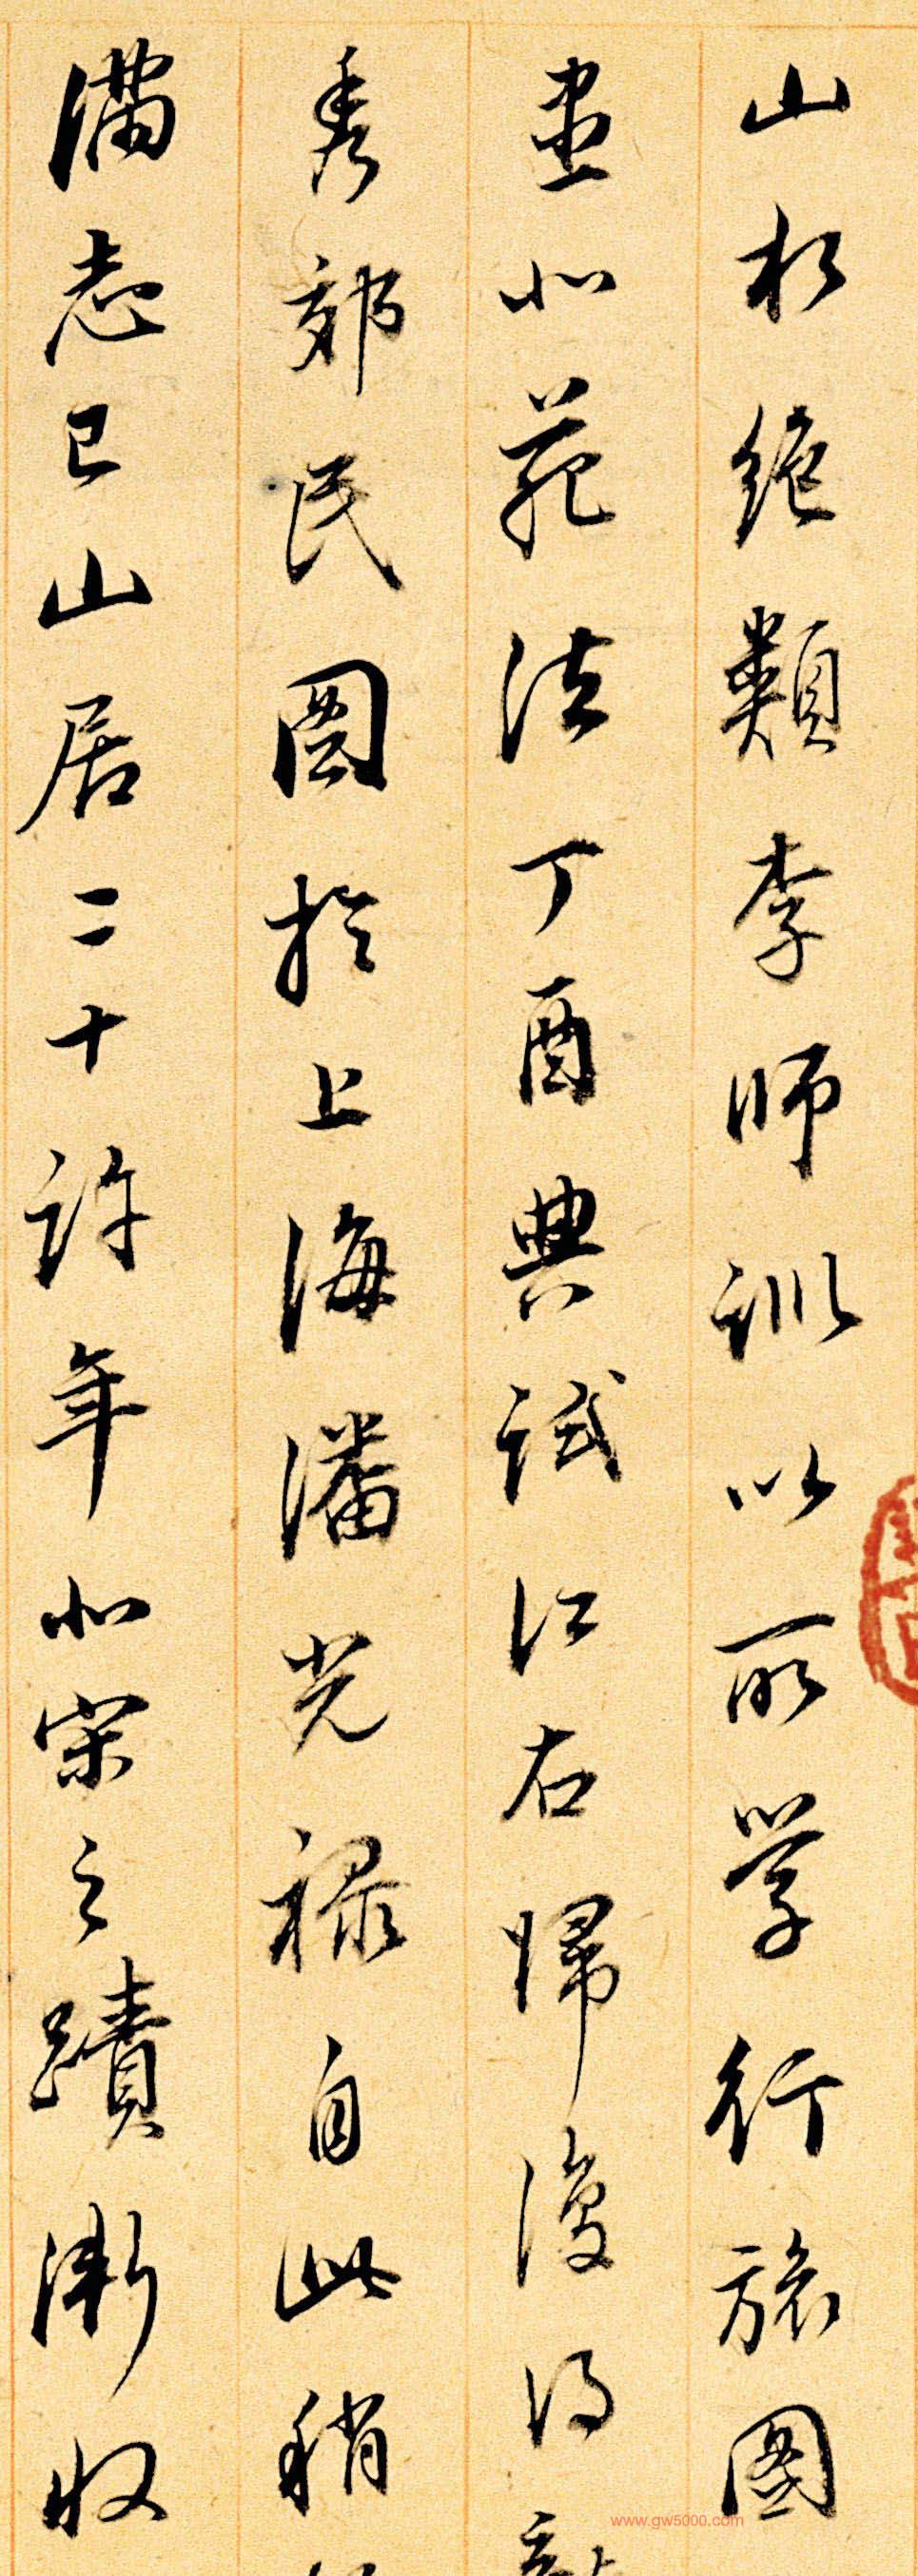 山水绝類李師訓以所学行旅图
畫北苑法丁酉典試江右歸復得
秀郊民圖於上海潘光禄自此稍
满志已山居二十許年北宋之蹟漸收
www.gw5000.com